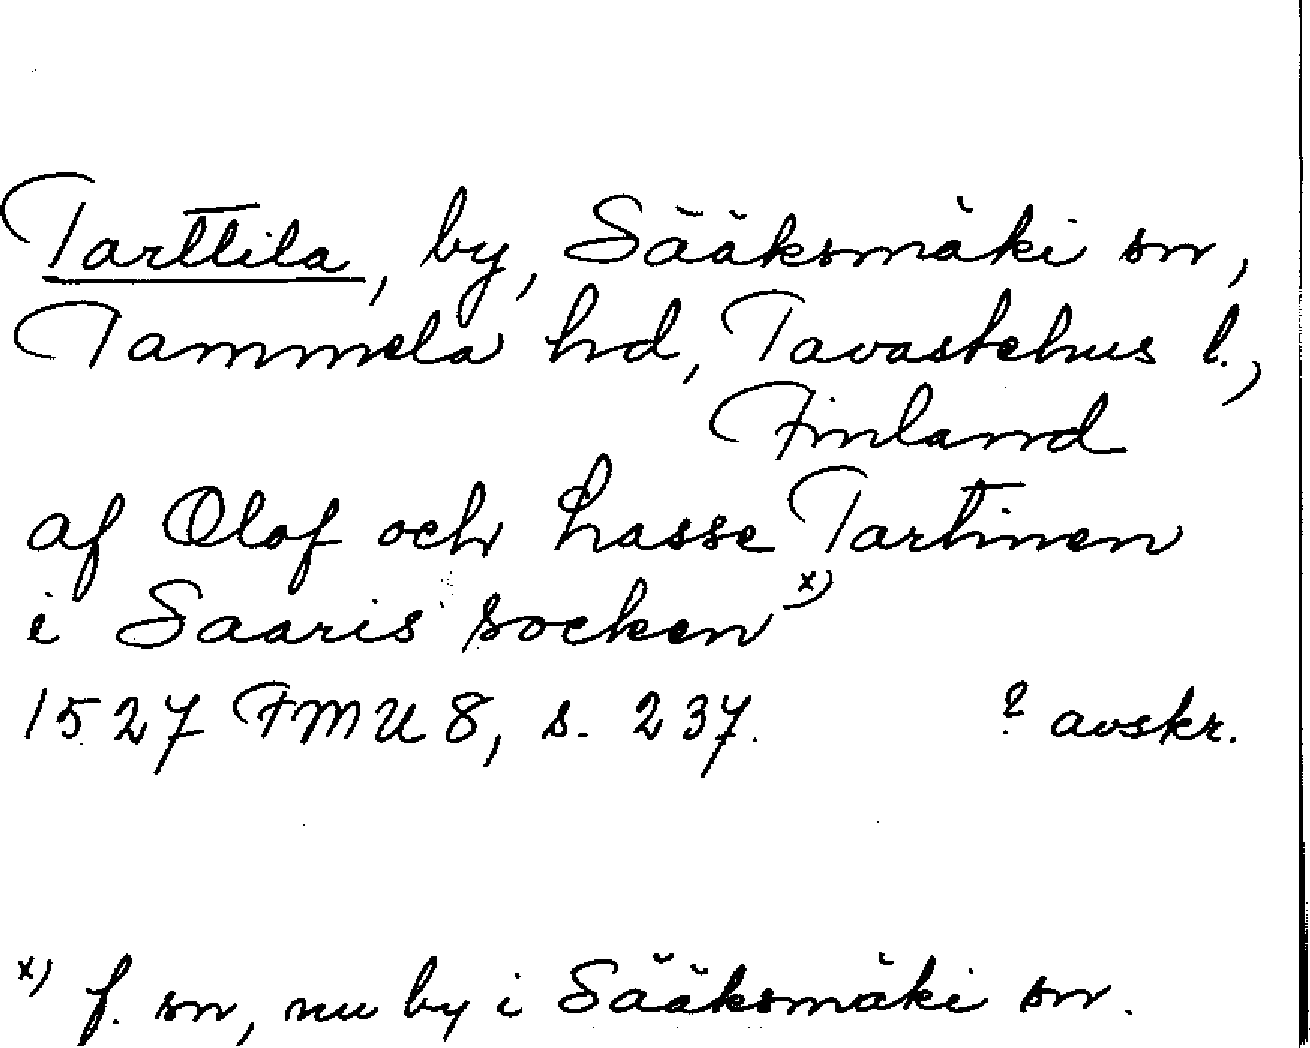 Tarttila, by, Sääksmäki sn,
Tammela hd, Tavastehus l.,
Finland
af Olof och hasse Tartinen
i Saaris socken x)
1527 FMU 8, s. 237. ? avskr.
x) f. sn, nu by i Sääksmäki sn.